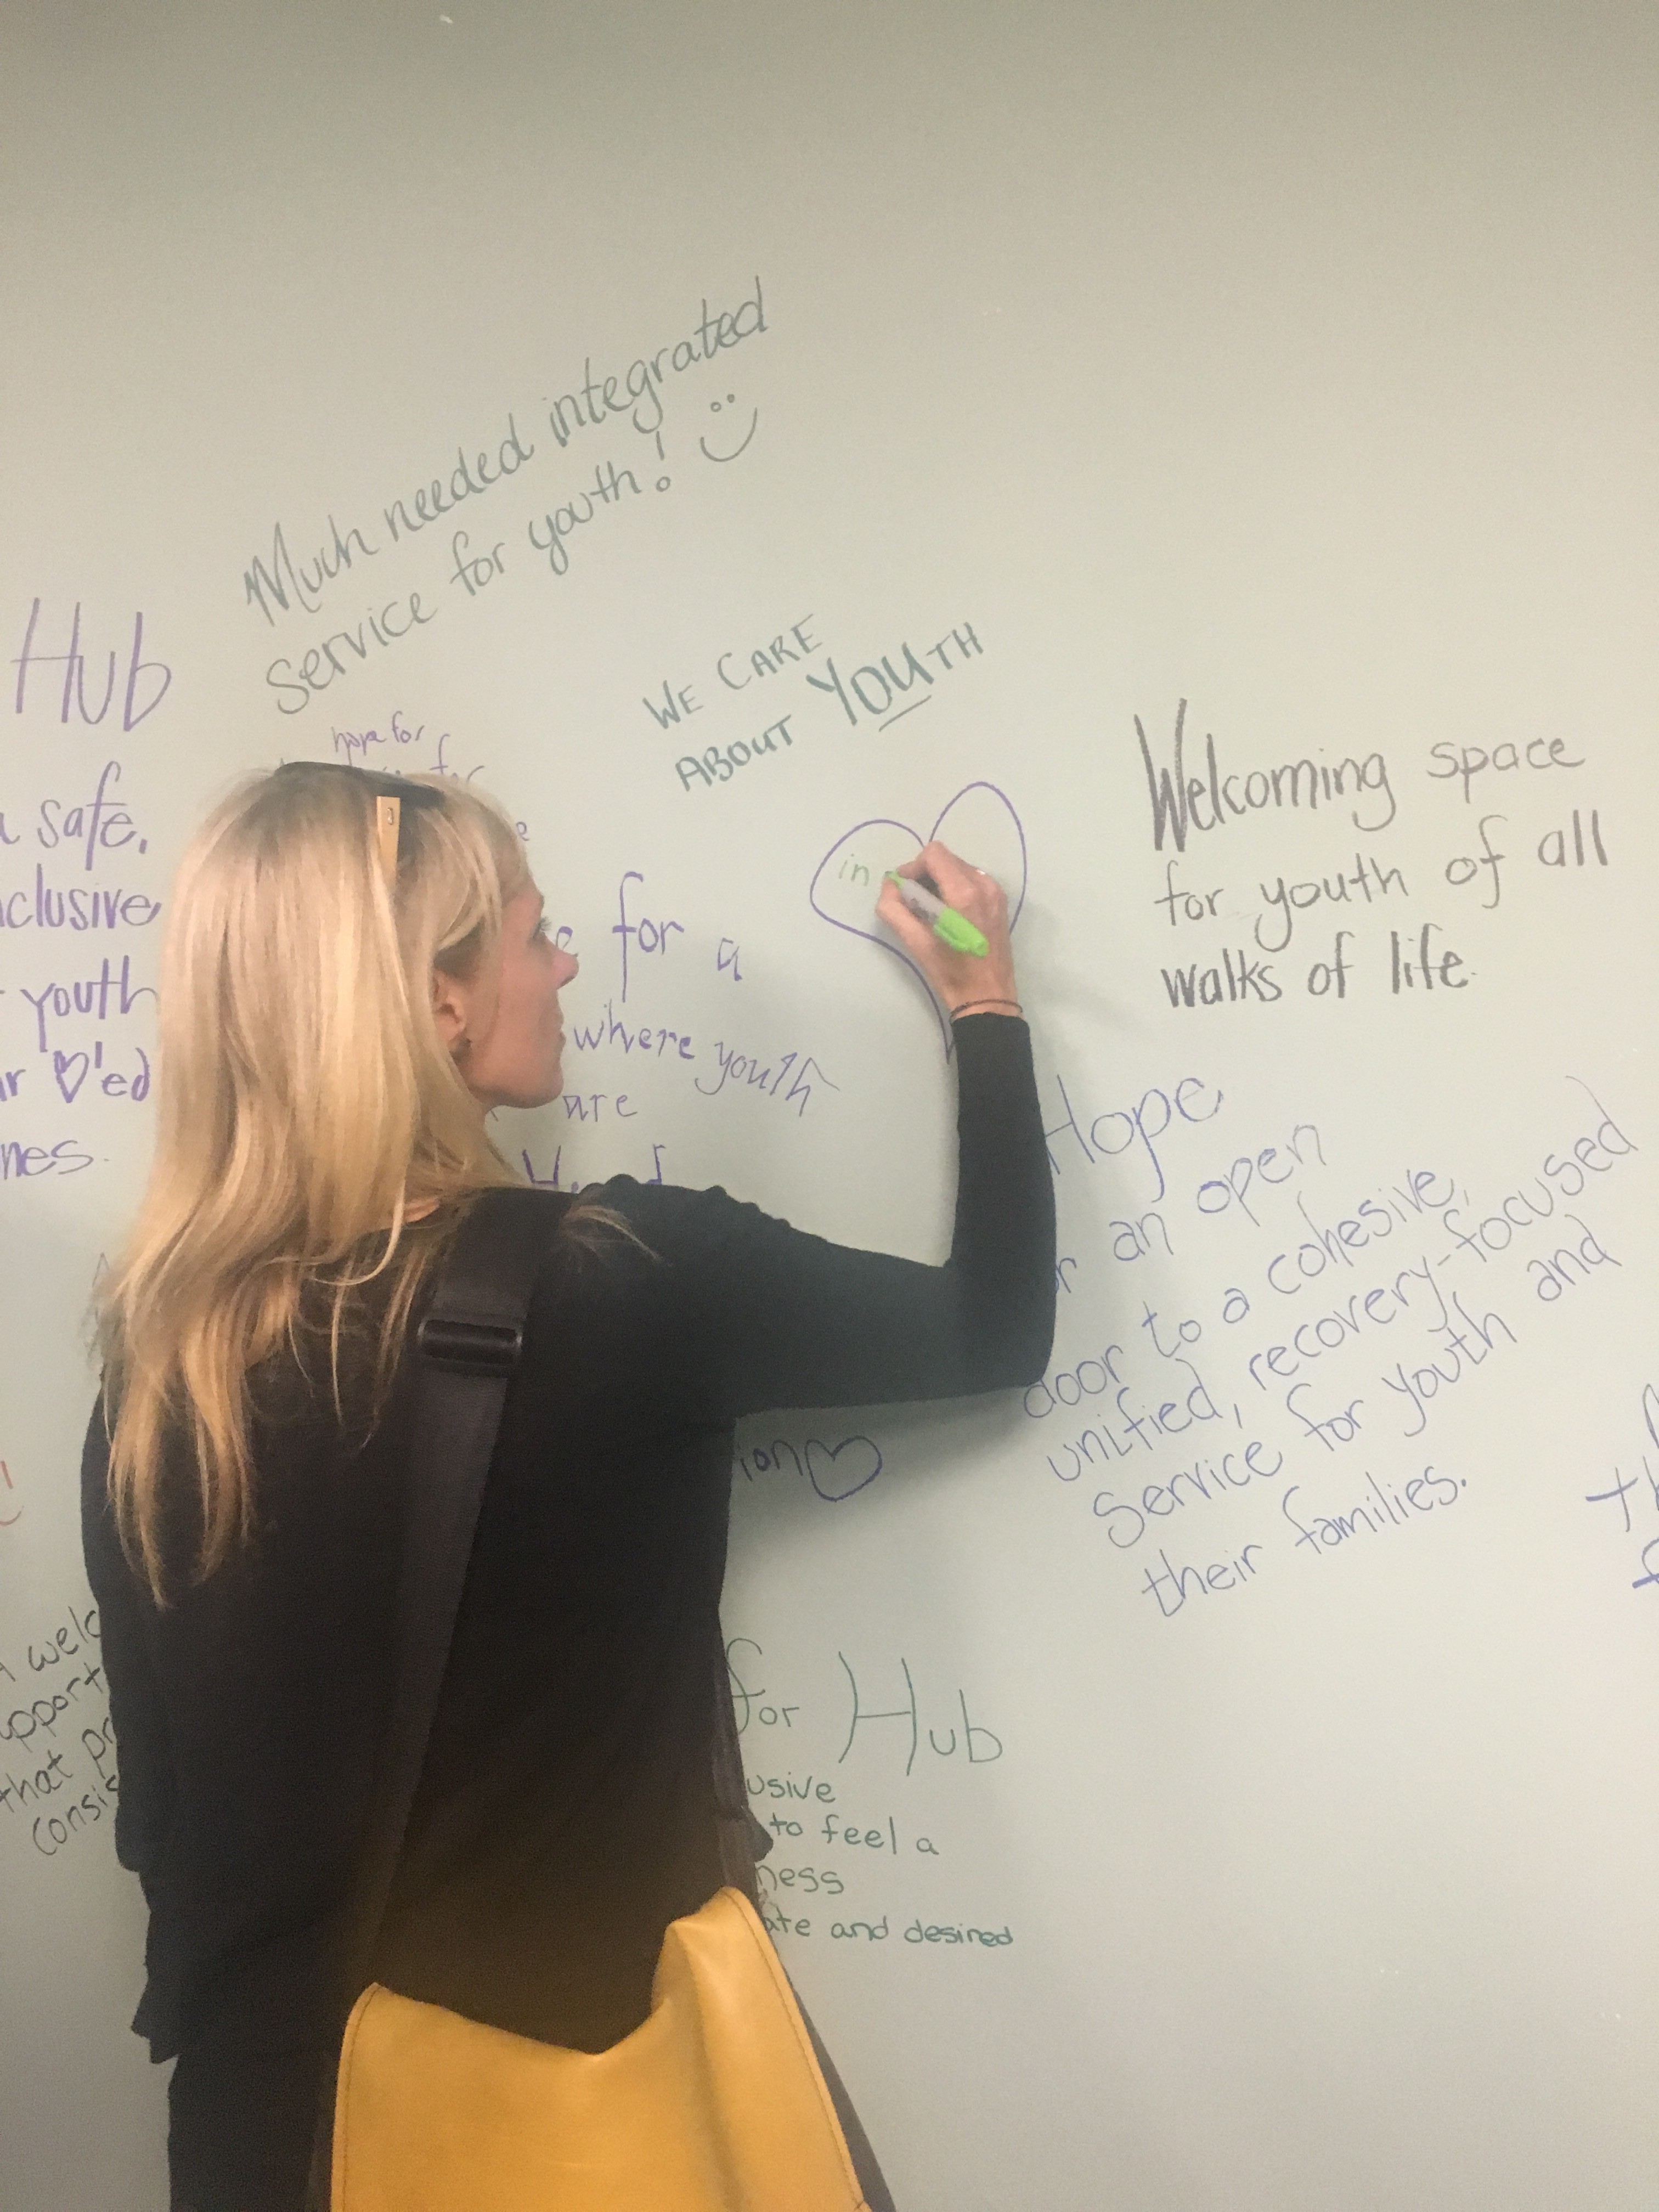 Much needed integrated
service for youth!
WE CARE
ABOUT YOUTH
Hub
safe,
clusive
youth
♡'ed
nes.
hope for
for a
where youth
are
in
Welcoming space
for youth of all
walks of life.
Hope
an open
door to a cohesive,
unified, recovery-focused
service for youth and
their families.
ion ♡
welc
pport
that pr
consis
for Hub
usive
to feel a
ness
ate and desired